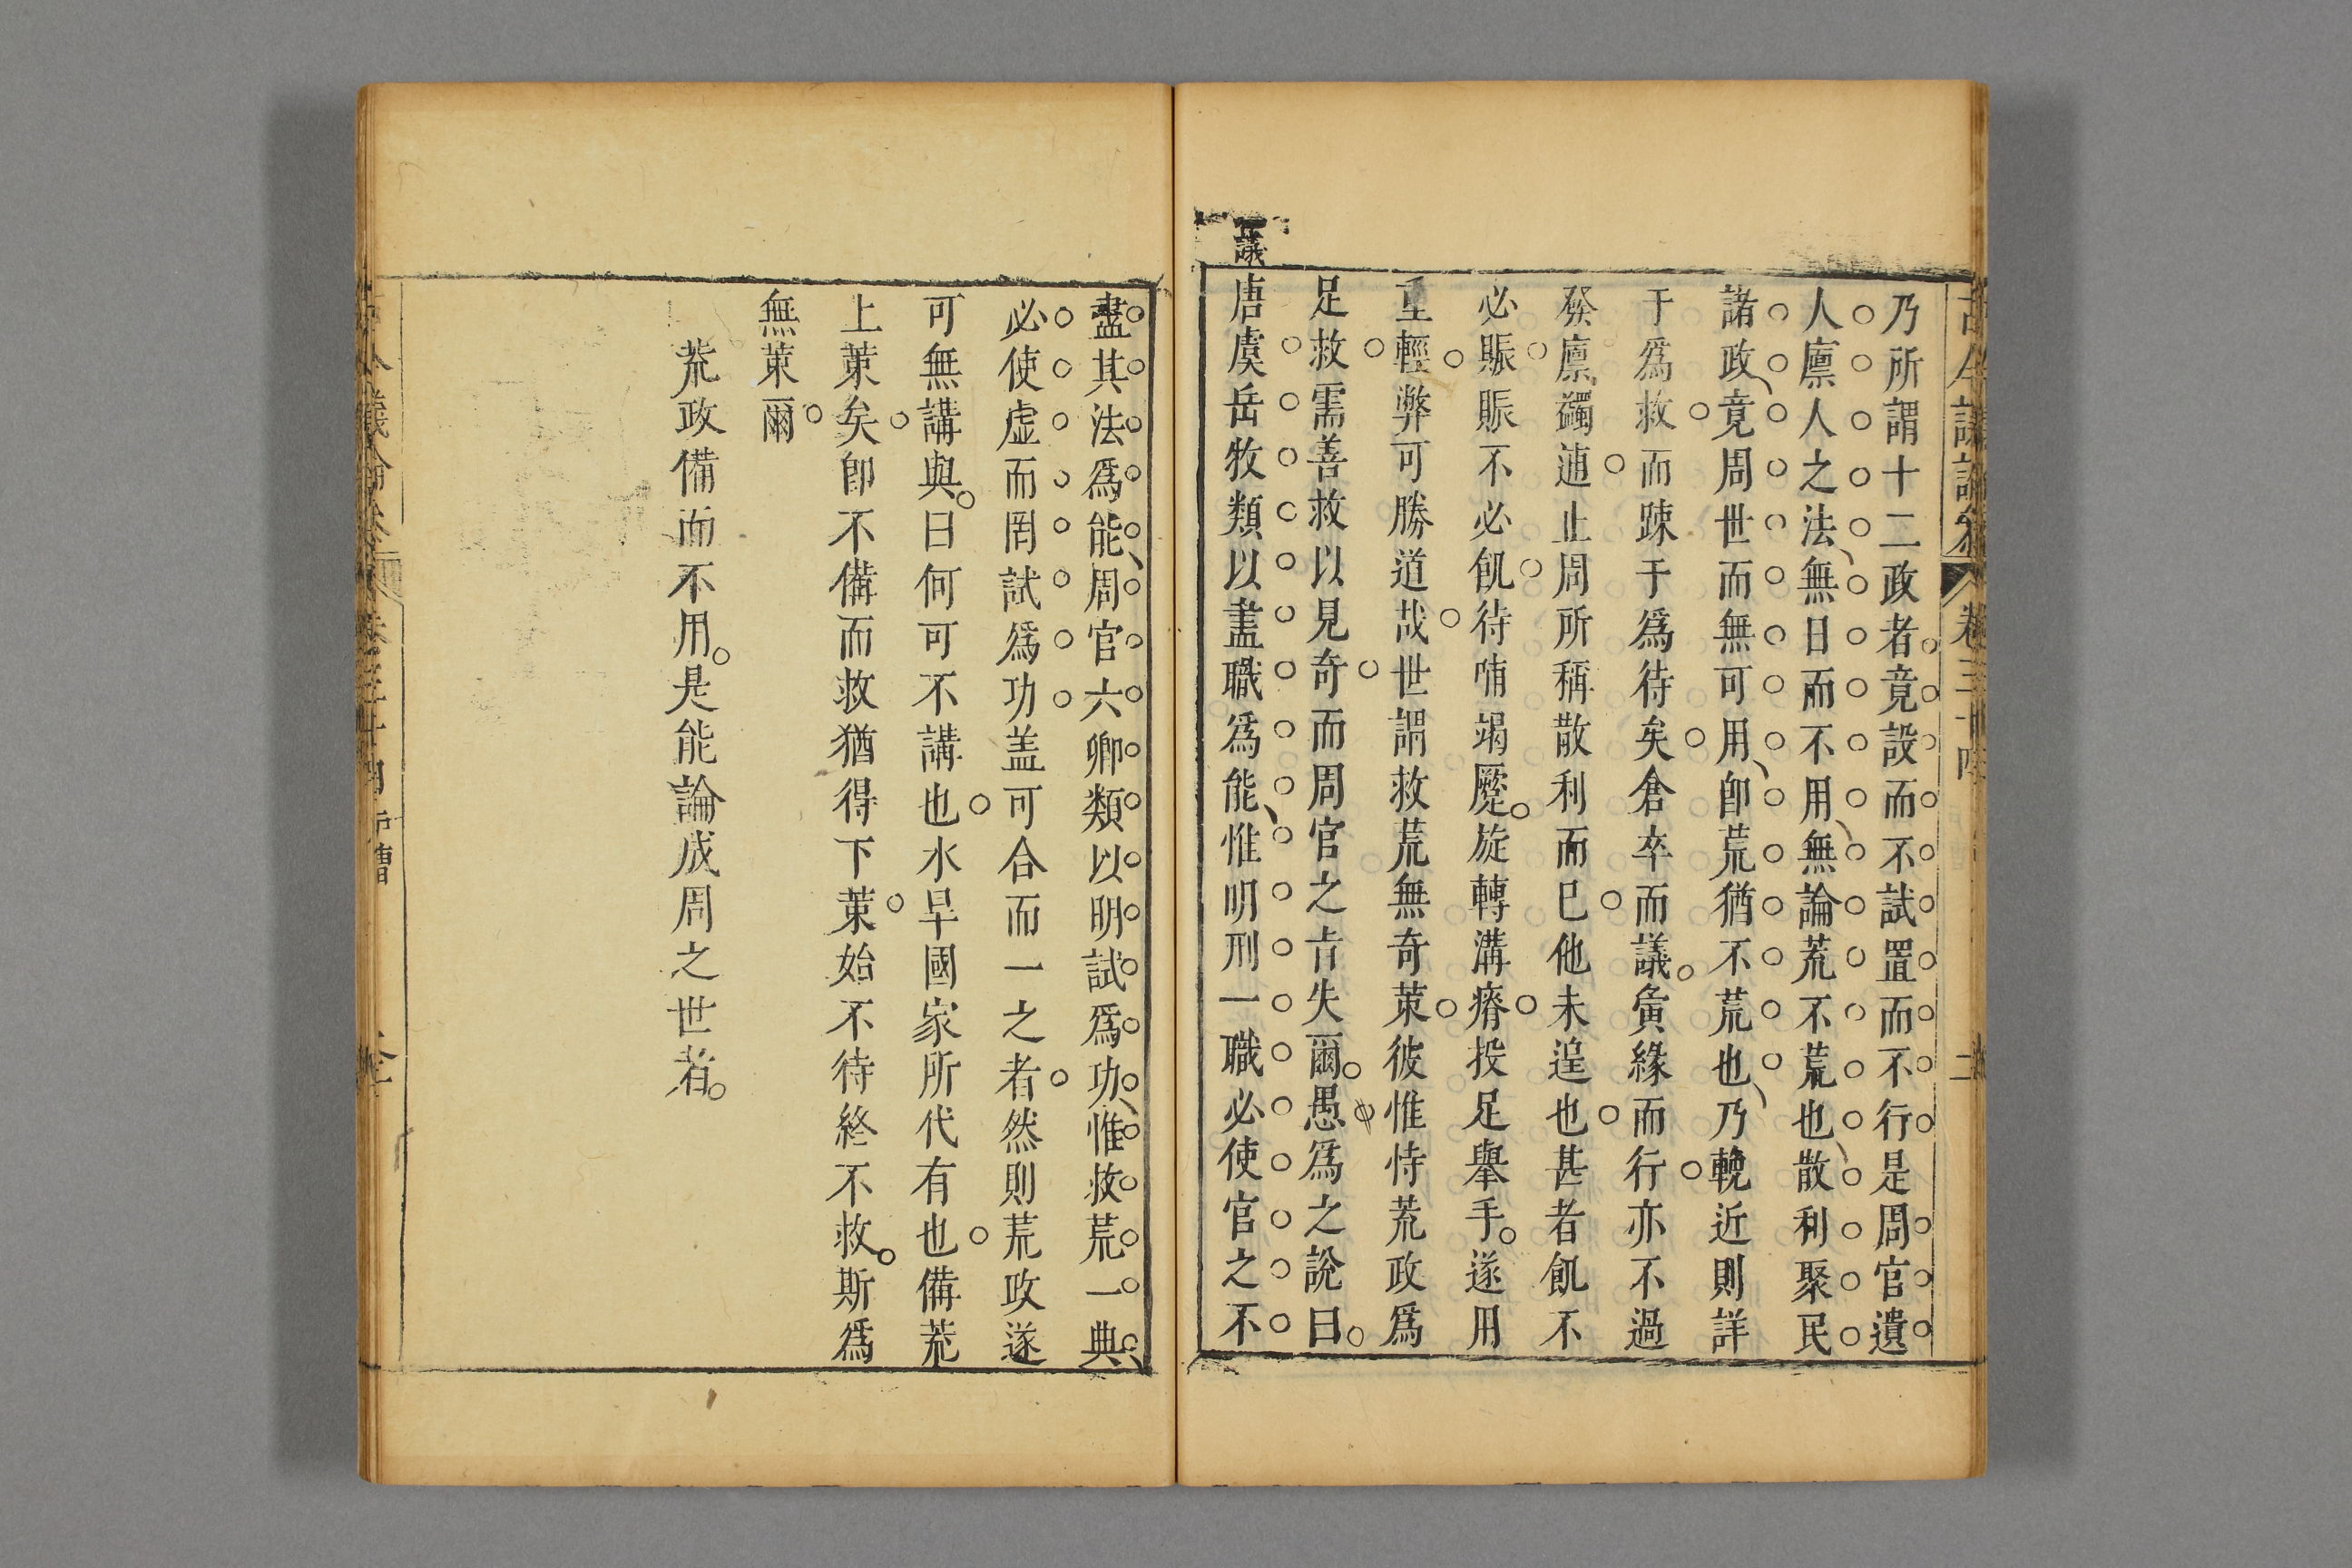 乃所謂十二政者竟設而不試置而不行是周官遺
人廪人之法無日而不用無論荒不荒也散利聚民
諸政竟周世而無可用卽荒猶不荒也乃輓近則詳
于爲救而踈于爲待矣倉卒而議夤緣而行亦不過
發廪蠲逋止周所稱散利而已他未遑也甚者飢不
必賑賑不必飢待哺竭蹷旋轉溝瘠投足舉手遂用
重輕弊可勝道哉世謂救荒無奇策彼惟恃荒政爲
足救需善救以見奇而周官之㫖失爾愚爲之說曰
唐虞岳牧類以盡職爲能惟明刑一職必使官之不
盡其法爲能周官六卿類以明試爲功惟救荒一典
必使虛而罔試爲功盖可合而一之者然則荒政遂
可無講與曰何可不講也水旱國家所代有也備荒
上策矣卽不備而救猶得下策始不待終不救斯爲
無策爾
荒政備而不用是能論成周之世者